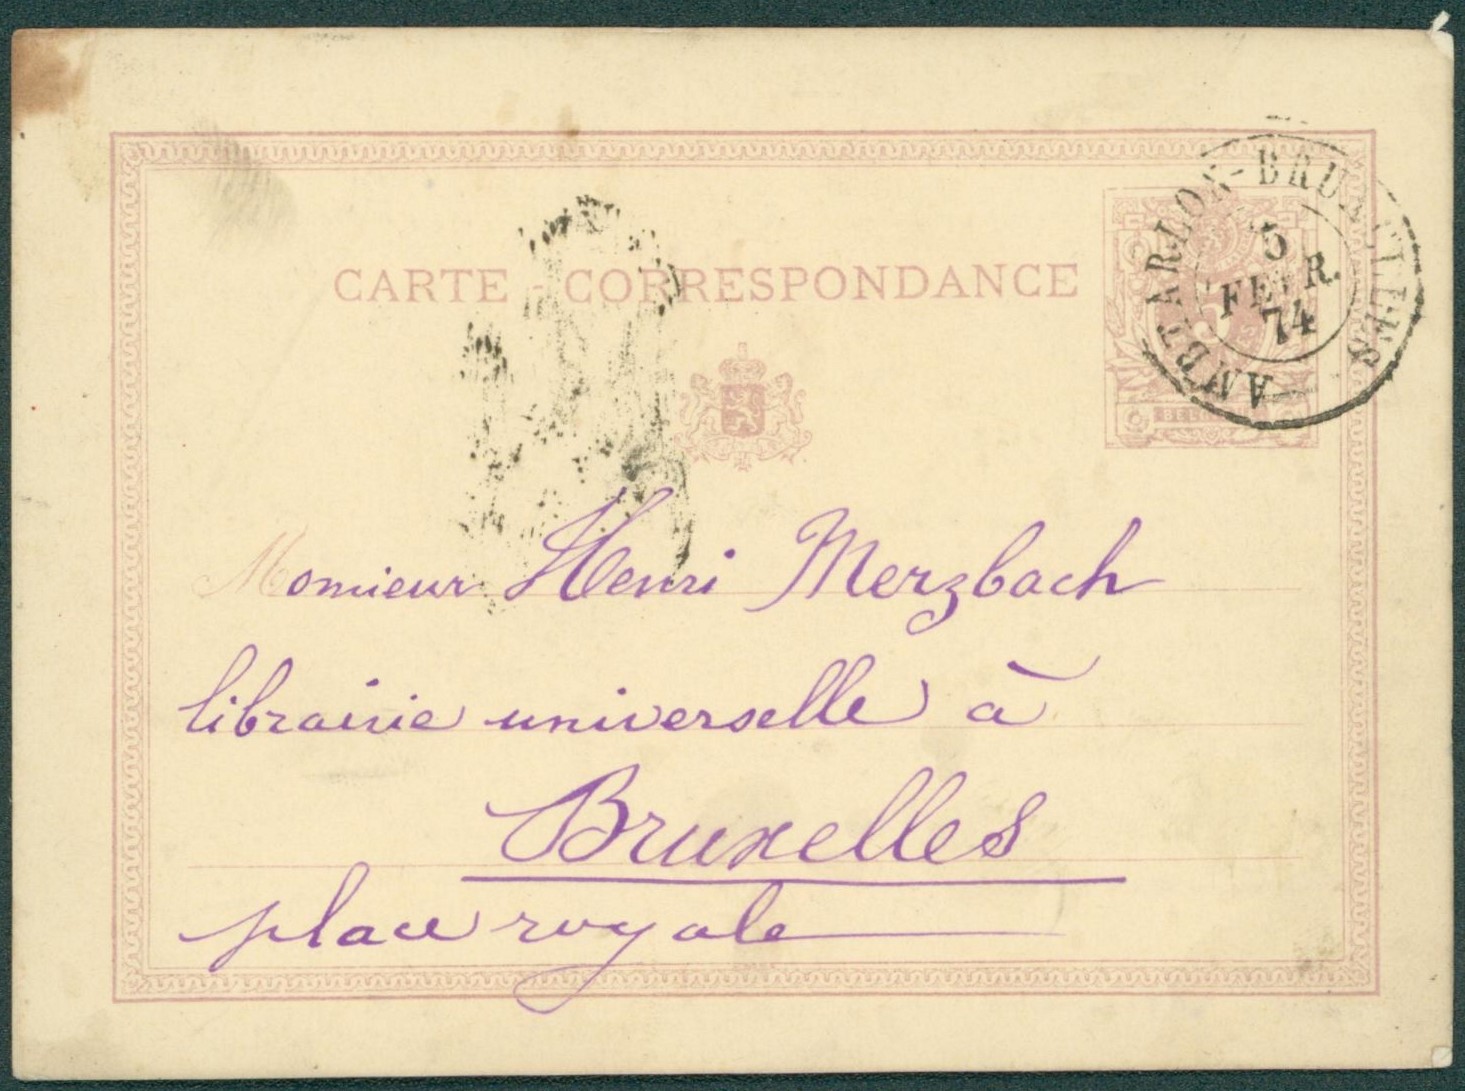 CARTE - CORRESPONDANCE
AMBT ARLON-BRUXELLES
5
FEVR.
74
5
BELG
Monsieur Henri Merzbach
librairie universelle à
Bruxelles
place royale